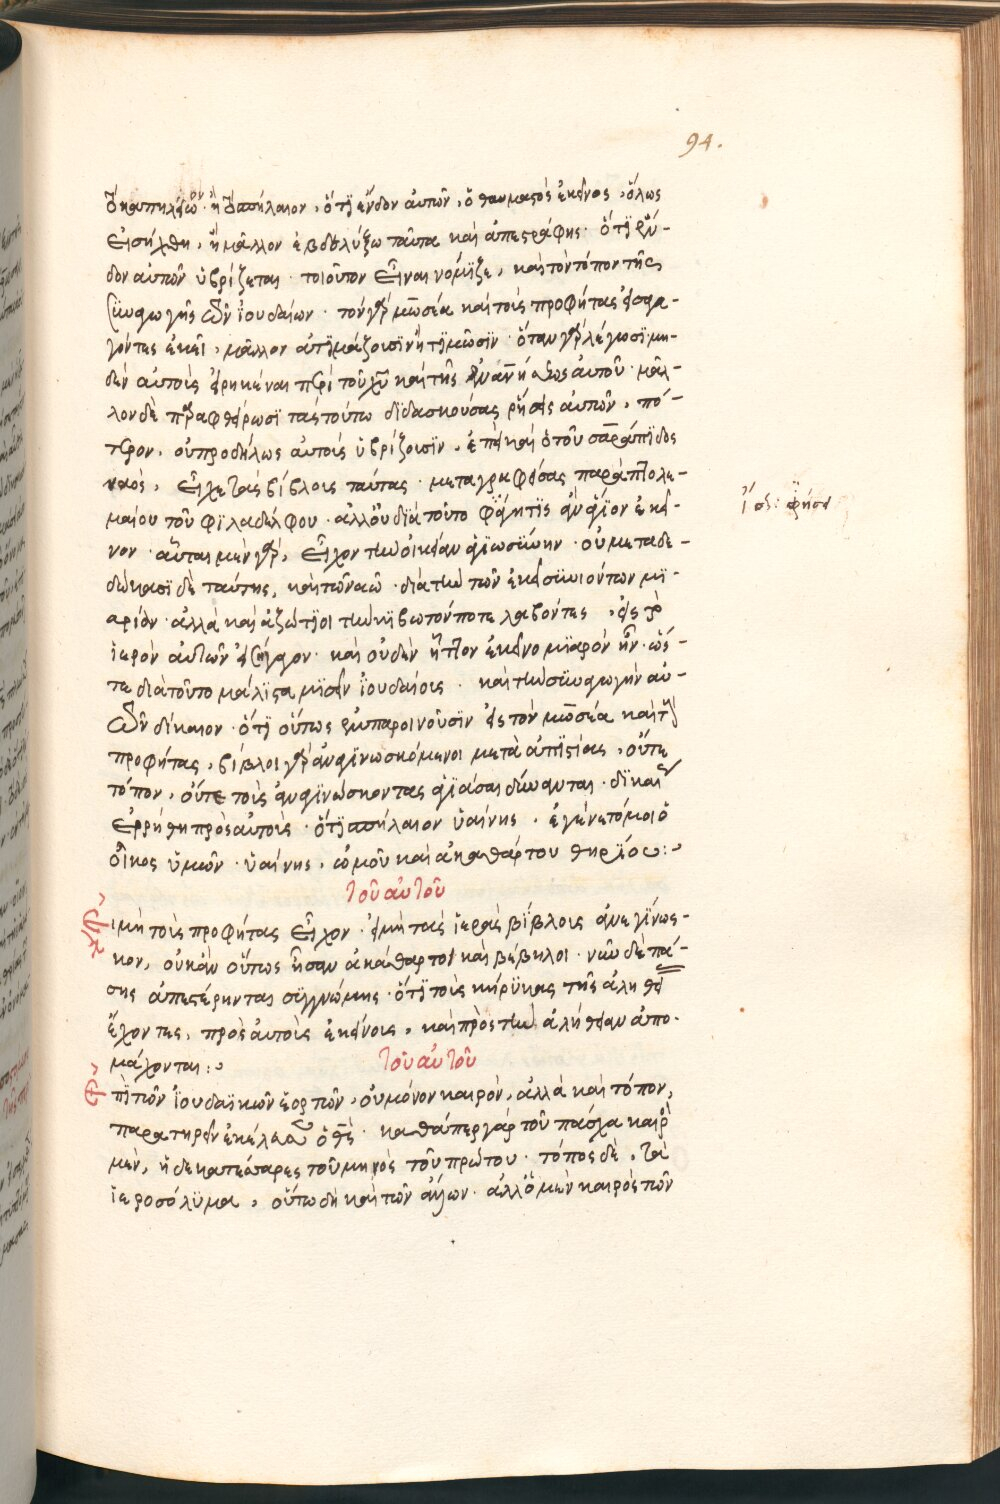 94.
ὁ καπηλεῖον. ἢ ὁ σπήλαιον, ὅτι ἔνδον αὐτῶν, ὁ θαυμαστὸς ἐκεῖνος, ὅλως
εἰσήχθη, ἢ μᾶλλον ἐβδελύξω ταῦτα καὶ ἀπεστράφης· ὅτι ἔν-
δον αὐτῶν ὑβρίζεται· τοιοῦτον εἶναι νόμιζε, καὶ τὸν τόπον τῆς
συναγωγῆς τῶν ἰουδαίων· τὸν γὰρ μωσέα καὶ τοὺς προφήτας εἰσαγα-
γόντες ἐκεῖ, μᾶλλον ἀτιμάζουσιν ἢ τιμῶσιν· ὅταν γὰρ λέγωσι μη-
δὲν αὐτοὺς εἰρηκέναι περὶ τοῦ χῦ καὶ τῆς αὐτοῦ· μᾶλ-
λον δὲ παραφθείρωσι τὰς τοῦτο διδασκούσας ῥήσεις αὐτῶν, πό-
τερον, οὐ προδήλως αὐτοὺς ὑβρίζουσιν, ἐπεὶ καὶ ὁ τοῦ σαράπιδος
ναὸς, εἶχε τὰς βίβλους ταύτας· μεταγραφείσας παρὰ πτολε-
μαίου τοῦ φιλαδέλφου· ἀλλ' οὐ διὰ τοῦτο φαίη τις ἂν ἅγιον ἐκεῖ-
ἴσως: φήσει
νον· αὗται μὲν γὰρ, εἶχον τὴν οἰκείαν ἁγιωσύνην· οὐ μεταδε-
δώκασι δὲ ταύτης, καὶ τῷ ναῷ· διὰ τὴν τῶν ἐκεῖ συνιόντων μι-
αρίαν· ἀλλὰ καὶ ἀζώτιοι τὴν κιβωτόν ποτε λαβόντες, εἰς τὸ
ἱερὸν αὐτῶν εἰσήγαγον· καὶ οὐδὲν ἧττον ἐκεῖνο μιαρὸν ἦν· ὥσ-
τε διὰ τοῦτο μάλιστα μισεῖν ἰουδαίους· καὶ τὴν συναγωγὴν αὐ-
τῶν δίκαιον· ὅτι οὕτως ἐμπαροινοῦσιν εἰς τὸν μωσέα καὶ τοὺς
προφήτας, βίβλοι γὰρ ἀναγινωσκόμεναι μετὰ ἀπιστίας, οὔτε
τόπον, οὔτε τοὺς ἀναγινώσκοντας ἁγιάσαι δύνανται· δικαίως
ἐρρήθη πρὸς αὐτοὺς· ὅτι σπήλαιον ὑαίνης· ἐγένετό μοι ὁ
οἶκος ὑμῶν· ὑαίνης, ὠμοῦ καὶ ἀκαθάρτου θηρίου:
τοῦ αὐτοῦ
Εἰ μὴ τοὺς προφήτας εἶχον· εἰ μὴ τὰς ἱερὰς βίβλους ἀνεγίνωσ-
κον, οὐκ ἂν οὕτως ἦσαν ἀκάθαρτοι καὶ βέβηλοι· νῦν δὲ πά-
σης ἀπεστέρηνται συγγνώμης· ὅτι τοὺς κήρυκας τῆς ἀληθείας
ἔχοντες, πρὸς αὐτοὺς ἐκείνους, καὶ πρὸς τὴν ἀλήθειαν ἀπο-
μάχονται:
τοῦ αὐτοῦ
Ἐπὶ τῶν ἰουδαϊκῶν ἑορτῶν, οὐ μόνον καιρὸν, ἀλλὰ καὶ τόπον,
παρατηρεῖν ἐκέλευσεν ὁ θεὸς· καθάπερ γὰρ τοῦ πάσχα καιρὸς
μὲν, ἡ δεκατέσσαρες τοῦ μηνὸς τοῦ πρώτου· τόπος δὲ, τὰ
ἱεροσόλυμα, οὕτω δὴ καὶ τῶν ἄλλων· ἀλλ' ὁ μὲν καιρὸς τῶν